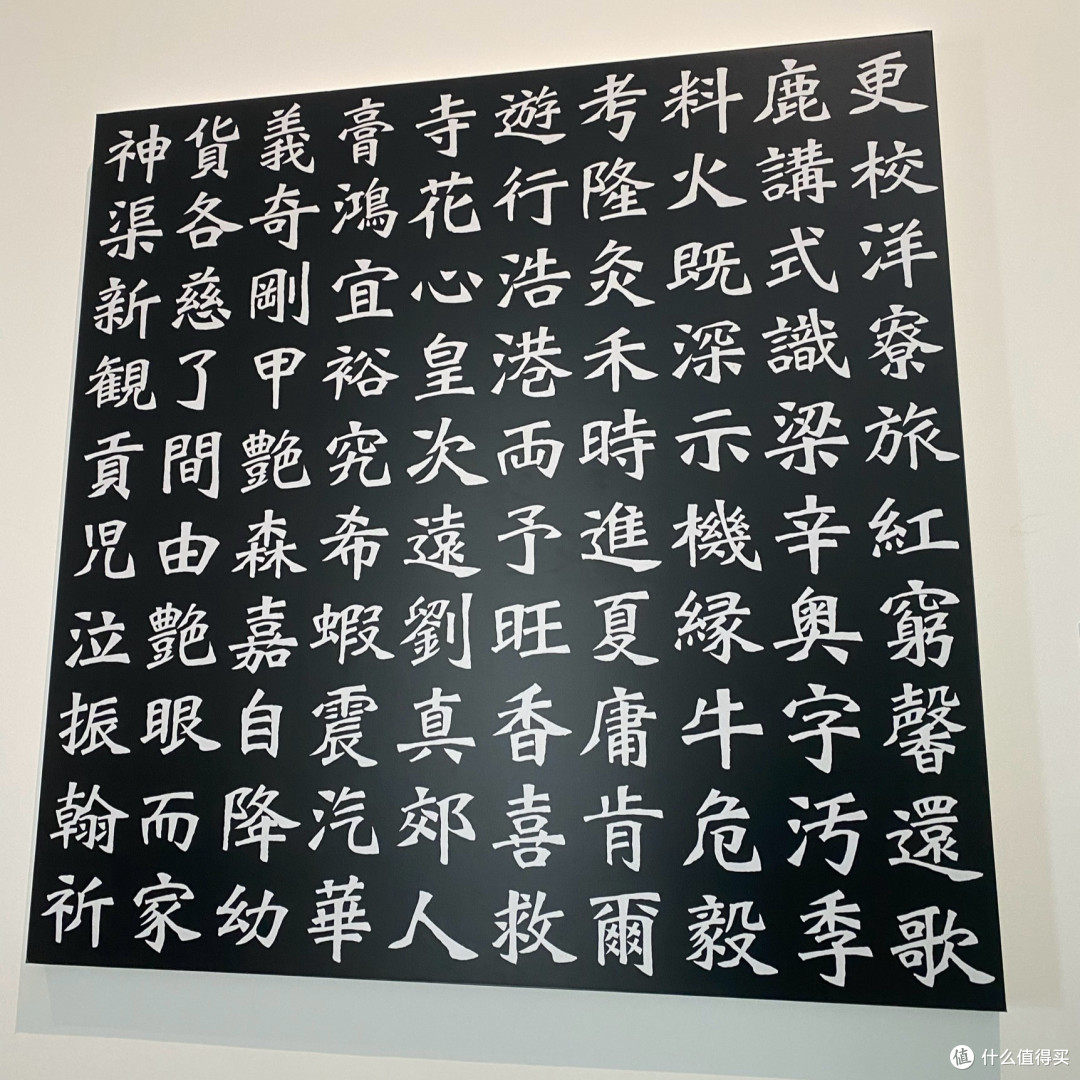 更校洋寮旅紅窮馨還歌
鹿講式識梁辛奥字汚季
料火既深示機縁牛危毅
考隆灸禾時進夏庸肯爾
遊行浩港両予旺香喜救
寺花心皇次遠劉真郊人
膏鴻宜裕究希蝦震汽華
義奇剛甲艶森嘉自降幼
貨各慈了間由艶眼而家
神渠新観貢児泣振翰祈
值 什么值得买